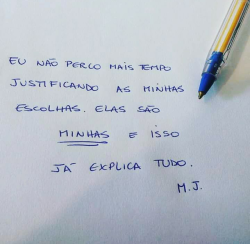 EU NÃO PERCO MAIS TEMPO
JUSTIFICANDO AS MINHAS
ESCOLHAS. ELAS SÃO
MINHAS E ISSO
JÁ EXPLICA TUDO.
M.J.